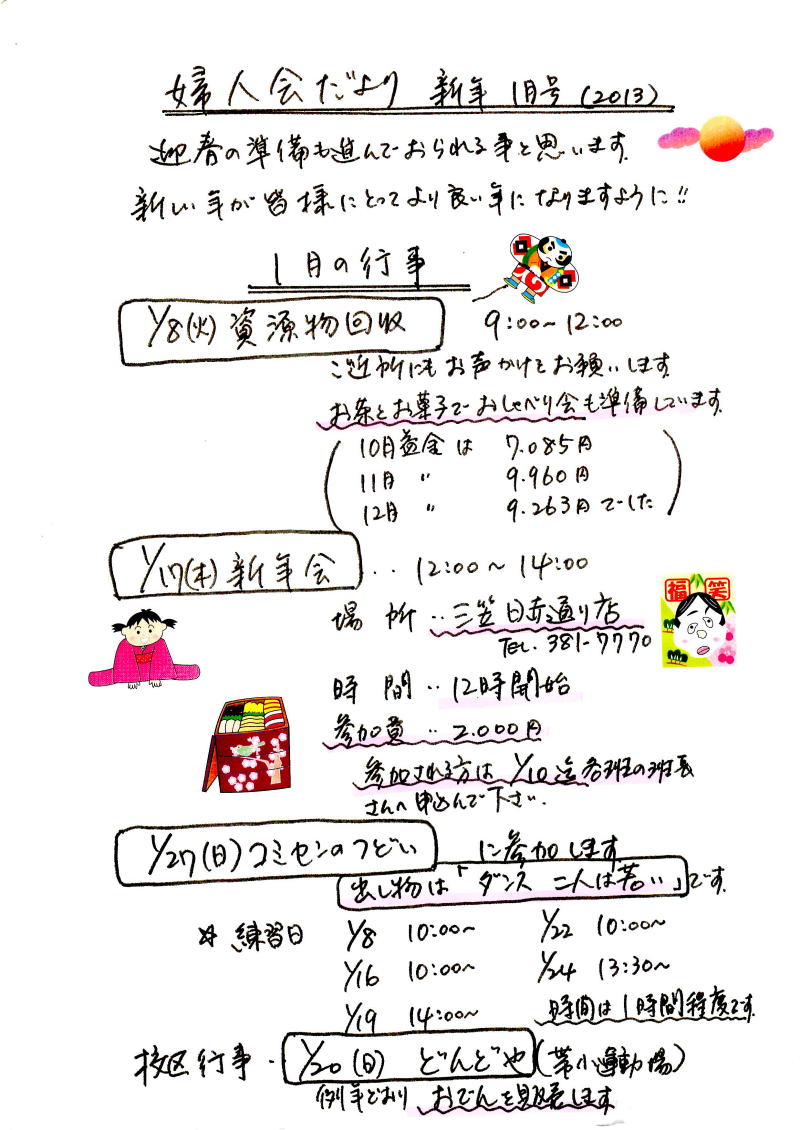 婦人会だより 新年 1月号 (2013)
迎春の準備も進んでおられる事と思います。
新しい年が皆様にとってより良い年になりますように!!
1月の行事
1/8(火)資源物回収 9:00~12:00
ご近所にもお声かけをお願いします。
お茶とお菓子でおしゃべり会も準備しています。
(10月益金は 7.085円
11月 〃 9.960円
12月 〃 9.263円でした)
1/17(木)新年会 ‥ 12:00~14:00
場所‥三笠日赤通り店
TEL. 381-7770
福笑
時間‥12時開始
参加費‥2.000円
参加される方は1/10迄各班の班長
さんへ申込んで下さい。
1/27(日)コミセンのつどい に参加します。
出し物は「ダンス 二人は若い」です。
* 練習日 1/8 10:00~ 1/22 10:00~
1/16 10:00~ 1/24 13:30~
1/19 14:00~ 時間は1時間程度です。
校区行事・1/20(日) どんどや(帯小運動場)
例年どおり おでんを販売します